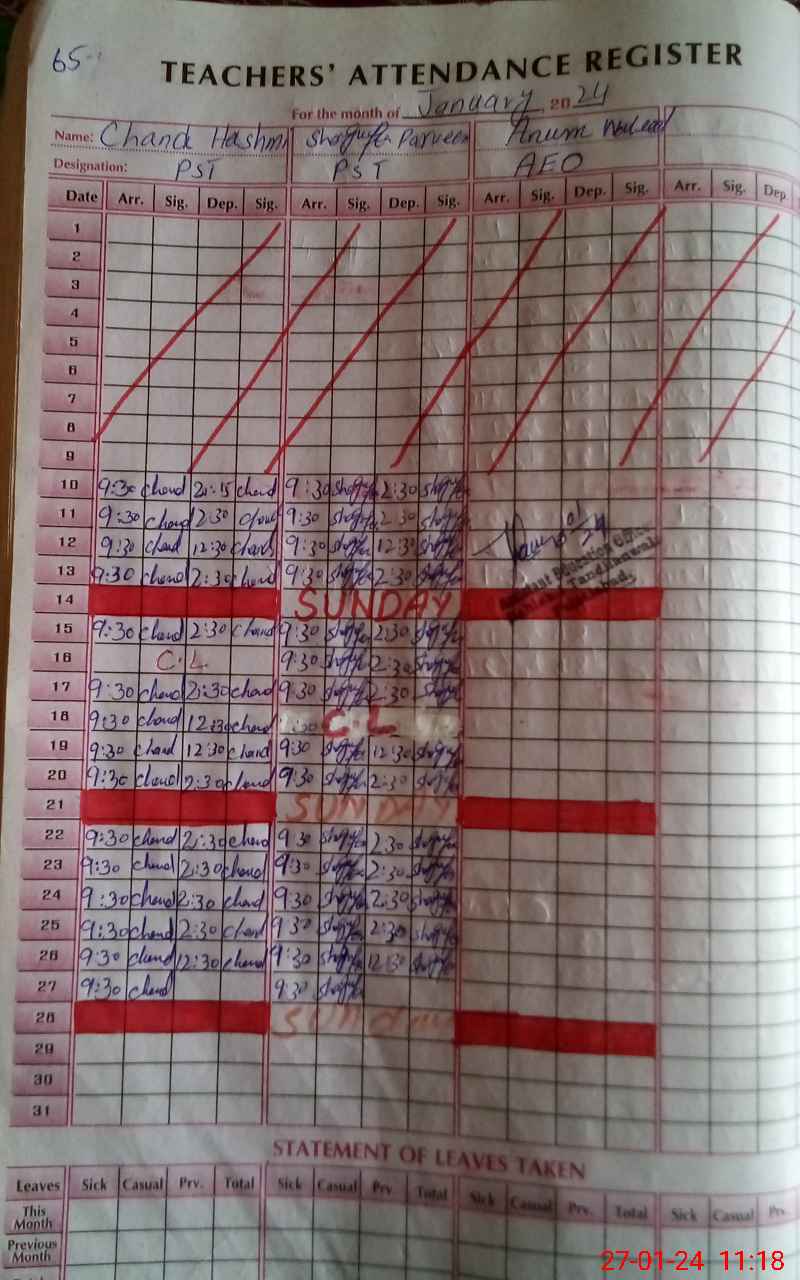 65
TEACHERS' ATTENDANCE REGISTER
For the month of January 2024
Name: Chand Hashmi Shagufta Parveen Anum
Designation: PST PST AEO
Date Arr. Sig. Dep. Sig. Arr. Sig. Dep. Sig. Arr. Sig. Dep. Sig. Arr. Sig. Dep.
1
2
3
4
5
6
7
8
9
10 9:30 chand 2:15 chand 9:30 2:30
11 9:30 chand 2:30 chand 9:30 2:30
12 9:30 chand 12:30 chand 9:30 12:30
13 9:30 chand 2:30 chand 9:30 2:30
14 SUNDAY
15 9:30 chand 2:30 chand 9:30 2:30
16 C.L. 9:30 2:30
17 9:30 chand 2:30 chand 9:30 2:30
18 9:30 chand 12:30 chand C.L
19 9:30 chand 12:30 chand 9:30 12:30
20 9:30 chand 2:30 chand 9:30 2:30
21 SUNDAY
22 9:30 chand 2:30 chand 9:30 2:30
23 9:30 chand 2:30 chand 9:30 2:30
24 9:30 chand 2:30 chand 9:30 2:30
25 9:30 chand 2:30 chand 9:30 2:30
26 9:30 chand 12:30 chand 9:30 12:30
27 9:30 chand 9:30
28 Sunday
29
30
31
Education Officer
STATEMENT OF LEAVES TAKEN
Leaves Sick Casual Prv. Total Sick Casual Prv Total Sick Casual Prv. Total Sick Casual Prv.
This Month
Previous Month
27-01-24 11:18